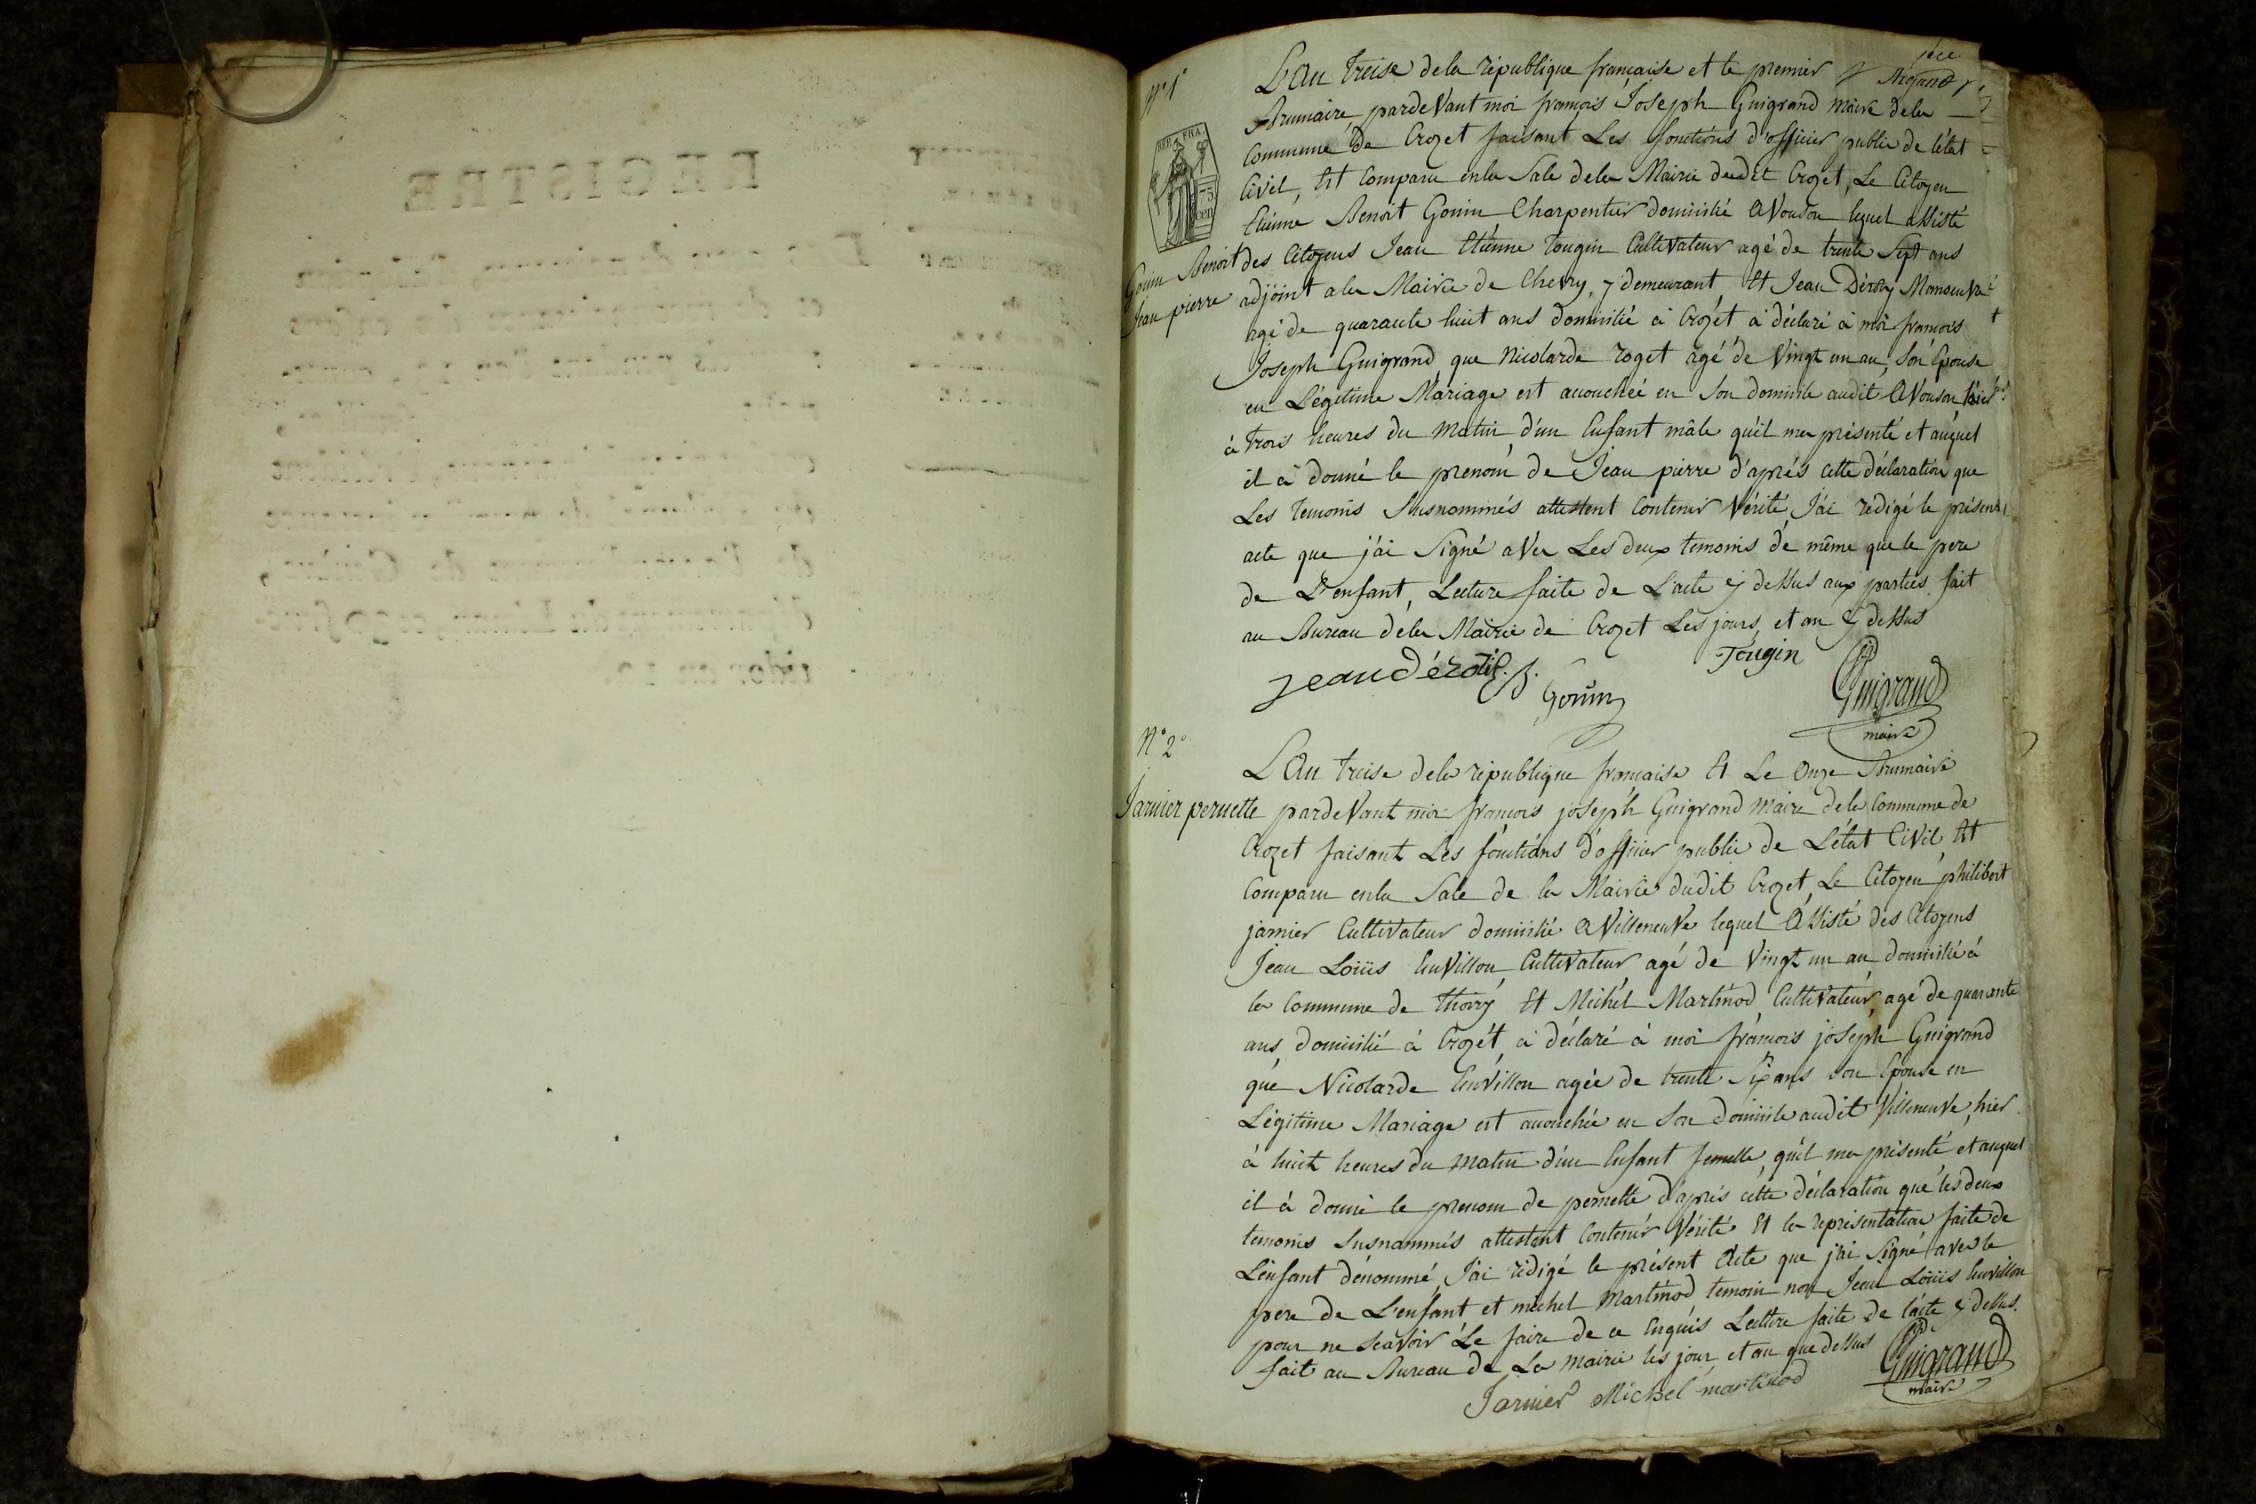 REGISTRE
N° 1°
REP. FRA.
75
cen
Gouin Benoit
Jean pierre
L'An treise dela république francaise et le premier
Brumaire, pardevant moi francois Joseph Guigrand maire dela
Commune de Crozet faisant Les fonctions d'officier public de l'état
Civil, Est Comparu enla Sale dela Mairie dudit Crozet, Le Citoyen
Etienne Benoit Gouin Charpentier domicilié Avouson lequel assisté
des Citoyens Jean Etienne Tougin Cultivateur agé de trente Sept ans
adjoint ala Mairie de Chevry, y demeurant Et Jean Déroby
agé de quarante huit ans domicilié à Crozet à déclaré à moi francois
Joseph Guigrand, que Nicolarde roget agé de Vingt un an, Son Epouse
en Légitime Mariage est accouchée en Son domicile audit Avouson hier
à Trois heures du Matin d'un Enfant mâle qu'il ma présenté et auquel
il à donné le prenom de Jean pierre d'après cette déclaration que
Les temoins Susnommés attestent Contenir Vérité, J'ai rédigé le présent
acte que j'ai Signé avec Les deux temoins de même que le pere
de L'enfant, Lecture faite de L'acte cy dessus aux parties. fait
au Bureau dela Mairie de Crozet Les jours, et an cy dessus
Jean Tougin
Gouin Guigrand
maire
N° 2°
Jarnier pernette
L'An treise dela république francaise Et Le Onze Brumaire
pardevant moi francois joseph Guigrand maire dela Commune de
Crozet faisant Les fonctions d'officier public de L'état Civil, Est
Comparu enla Sale de la Mairie dudit Crozet, Le Citoyen philibert
jarnier Cultivateur domicilié AVilleneuve lequel Assisté des Citoyens
Jean Loüis Envillon, Cultivateur agé de Vingt un an domicilié à
la Commune de thoiry Et Michel Martinod Cultivateur, agé de quarante
ans, domicilié à Crozet, à déclaré à moi francois joseph Guigrand
que Nicolarde Envillon agée de trente Six ans Son Epouse en
Légitime Mariage est accouchée en Son domicile audit Villeneuve, hier
à huit heures du matin d'un Enfant femelle, qu'il ma présenté et auquel
il à donné le prenom de pernette d'après cette déclaration que les deux
temoins Susnommés attestent Contenir Vérité Et la représentation faite de
L'enfant dénommé, J'ai rédigé le présent Acte que j'ai Signé avec le
pere de L'enfant et michel Martinod temoin non Jean Loüis Envillon
pour ne Scavoir Le faire de ce Enquis Lecture faite de l'acte cy dessus.
fait au Bureau de La mairie les jour, et an que dessus Guigrand
Jarnier Michel martinod maire